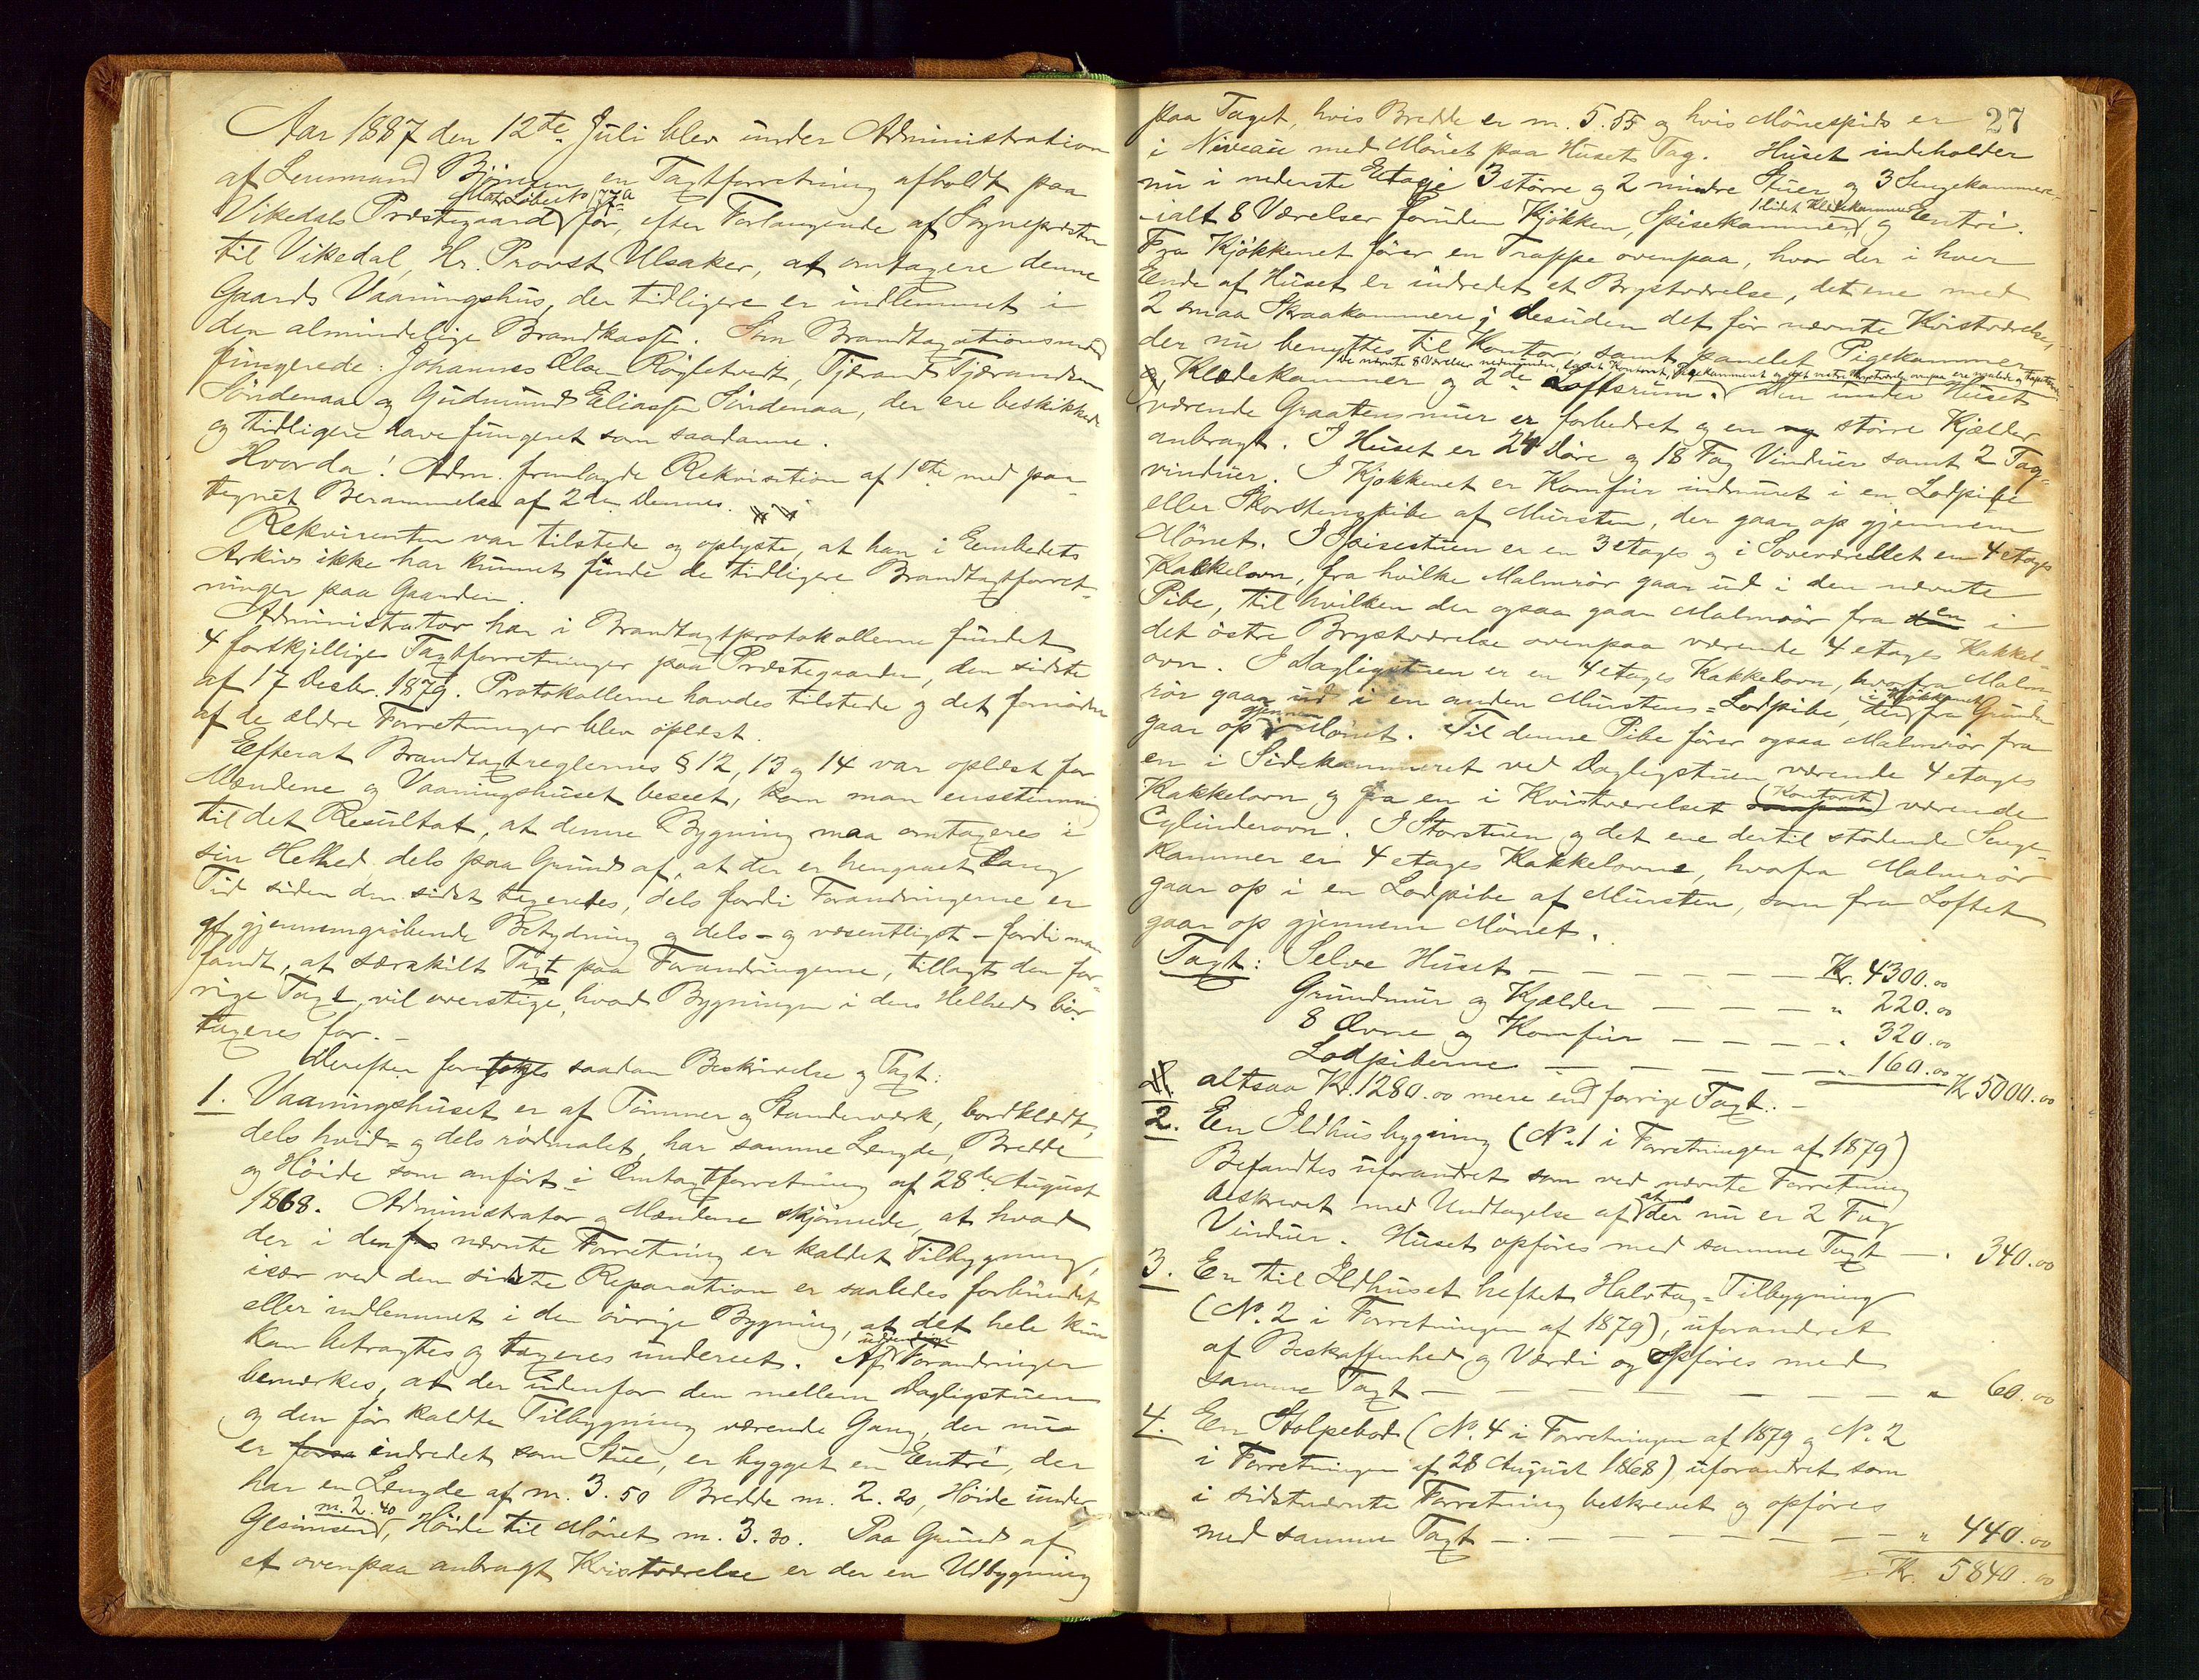 Aar 1887 den 12te Juli blev under Administration
af Lensmand en Taxtforretning afholdt paa
Matr. Löbe No 77a
Vikedals Præstegaard for, efter Forlangende af Sognepresten
til Vikedal, Hr. Provst Ulsaker, at omtaxere denne
Gaards Vaaningshus, der tidligere er indlemmet i
den almindelige Brandkasse. Som Brandtaxationsmænd
fungerede: Johannes Olsen Röglstvedt, Tjerand Tjerandsen
Söndenaa og Gudmund Eliassen Söndenaa, der ere beskikkede
og tidligere have fungeret som saadanne.
Hvorda! Adm. fremlagde Rekvisition af 1ste med paa-
tegnet Berammelse af 2den Dennes.
Rekvirenten var tilstede og oplyste, at han i Embedets
Arkiv ikke har kunnet finde de tidligere Brandtaxtforret-
ninger paa Gaarden.
Administrator har i Brandtaxtprotokollerne fundet
4 forskjellige Taxtforretninger paa Præstegaarden, den sidste
af 17 Decbr. 1879. Protokollerne havdes tilstede og det fornödne
af de ældre Forretninger blev oplæst.
Efterat Brandtaxtreglernes § 12, 13 og 14 var oplæst for
Mændene og Vaaningshuset beseet, kom man enstemmig
til det Resultat, at denne Bygning maa omtaxeres i
sin Helhed, dels paa Grund af, at der er hengaaet lang
Tid siden den sidst taxeredes, dels fordi Forandringerne er
af gjennemgribende Betydning og dels - og væsentligst - fordi man
fandt, at særskilt Taxt paa Forandringerne, tillagt den for-
rige Taxt, vil overstige, hvad Bygningen i dens Helhed bör
taxeres for. -
Derefter saadan Beskrivelse og Taxt:
1. Vaaningshuset er af Tömmer og Standerværk, bordklædt,
dels hvid- og dels rödmalet, har samme Længde, Bredde
og Höide som anfört i Omtaxtforretning af 28de August
1868. Administrator og Mændene skjönnede, at hvad
der i nævnte Forretning er kaldet Tilbygning,
især ved den sidste Reparation er saaledes forbundet
eller indlemmet i den övrige Bygning, at det hele kun
kan betragtes og taxeres undereet. Af udvendige Forandringer
bemærkes, at der udenfor den mellem Dagligstuen
og den för kaldte Tilbygning værende Gang, der nu
er indredet som Stue, er bygget en Entré, der
har en Længde af m. 3.50 Bredde m. 2.20, Höide under
Gesimsen m. 2.40, Höide til Mönet m. 3.30. Paa Grund af
et ovenpaa anbragt Kvistværelse er der en Udbygning
27
paa Taget, hvis Bredde er m. 5.55 og hvis Mönespids er
i Niveau med Mönet paa Husets Tag. Huset indeholder
nu i nederste Etage 3 större og 2 mindre Stuer og 3 Sengekammere
- ialt 8 Værelser foruden Kjökken, Spisekammer, 1 lidet Klædekammer og Entré.
Fra Kjökkenet förer en Trappe ovenpaa, hvor der i hver
Ende af Huset er indredet et Brystværelse, det ene med
2 smaa Skraakammere; desuden det för nævnte Kvistværelse,
der nu benyttes til Kontor, samt panelet Pigekammer,
Klædekammer og 2de Loftsrum. Den under Huset
værende Graastensmur er forbedret og en större Kjælder
anbragt. I Huset er 24 Döre og 18 Fag Vinduer samt 2 Tag-
vinduer. I Kjökkenet er Komfur indmuret i en Lodpibe
eller Skorstenspibe af Mursten, der gaar op gjennem
Mönet. I Spisestuen er en 3 etages og i Soveværelset en 4 etages
Kakkelovn, fra hvilke Malmrör gaar ud i den nævnte
Pibe, til hvilken der ogsaa gaar Malmrör fra en i
det östre Brystværelse ovenpaa værende 4 etages Kakkel-
ovn. I Dagligstuen er en 4 etages Kakkelovn, hvorfra Malm-
rör gaar ud i en anden Murstens-Lodpibe, der i Kjökkenet fra Grunden
gaar op gjennem Mönet. Til denne Pibe förer ogsaa Malmrör fra
en i Sidekammeret ved Dagligstuen værende 4 etages
Kakkelovn og fra en i Kvistværelset (Kontoret) værende
Cylinderovn. I Storstuen og det ene dertil stödende Senge-
kammer er 4 etages Kakkelovne, hvorfra Malmrör
gaar op i en Lodpibe af Mursten, som fra Loftet
gaar op gjennem Mönet.
Taxt: Selve Huset — — — — — Kr. 4300.00
Grundmur og Kjælder — — — — " 220.00
8 Ovne og Komfur — — — — " 320.00
Lodpiberne — — — — — " 160.00 Kr. 5000.00
altsaa Kr. 1280.00 mere end forrige Taxt. -
2. En Ildhusbygning (No. 1 i Forretningen af 1879)
Befandtes uforandret som ved nævnte Forretning
beskrevet med Undtagelse af at der nu er 2 Fag
Vinduer. Huset opföres med samme Taxt — " 340.00
3. En til Ildhuset heftet Halvtag-Tilbygning
(No. 2 i Forretningen af 1879), uforandret
af Beskaffenhed og Værdi og opföres med
samme Taxt — — — — — — " 60.00
4. En Stolpebod (No. 4 i Forretningen af 1879 og No. 2
i Forretningen af 28 August 1868) uforandret som
i sidstnævnte Forretning beskrevet og opföres
med samme Taxt — — — — — — " 440.00
Kr. 5840.00